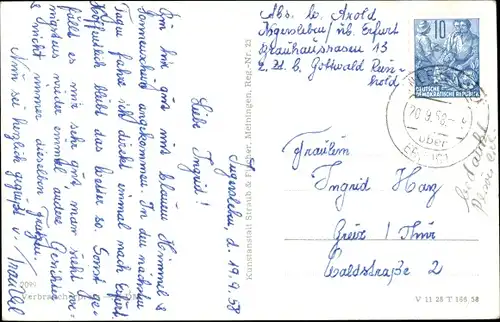 Ingersleben, d. 19.9.58
Liebe Ingrid!
Bin hier gut mit blauem Himmel &
Sonnenschein angekommen. In den nächsten
Tagen fahre ich direkt einmal nach Erfurt.
Hoffentlich bleibt das Wetter so. Sonst ge-
fällt es mir sehr gut, man sieht
wieder einmal andere Gesichter
& nicht immer dieselben
Nun sei herzlich gegrüßt v.
Traudel
Abs. b. Arold
Ingersleben/üb. Erfurt
Brauhausrasen 13
z. Zt. b. Gottwald Rein-
hold
10
DEUTSCHE
DEMOKRATISCHE REPUBLIK
20.9.58
über
Fräulein
Ingrid Harz
Greiz / Thür
Waldstraße 2
Kunstanstalt Straub & Fischer, Meiningen, Reg.-Nr. 23
V 11 28 T 166 58